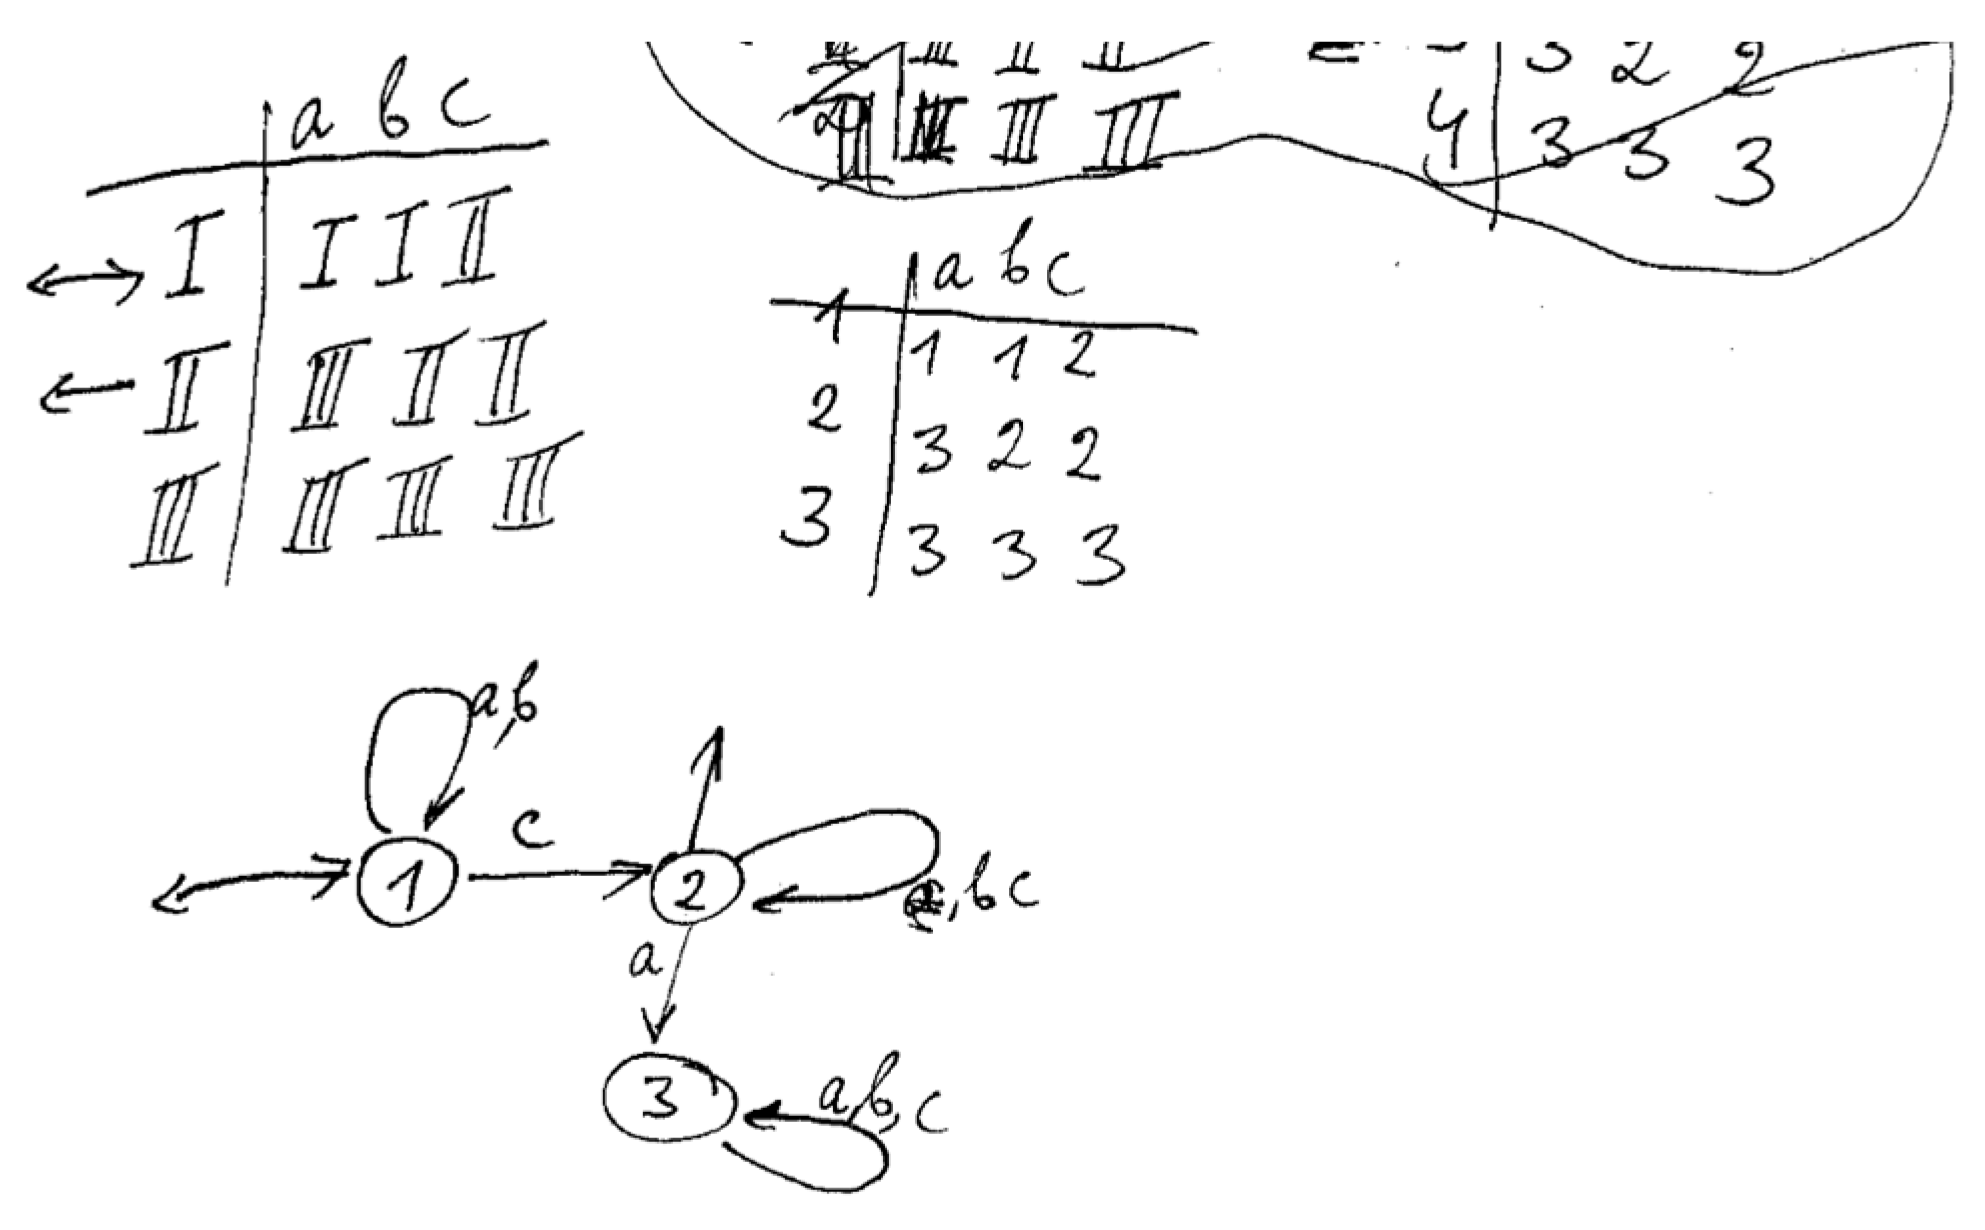 a b c
I I I II
II III II II
III III III III
III II II
III III III
3 2 2
4 3 3 3
a b c
1 1 1 2
2 3 2 2
3 3 3 3
a,b
c
1 2
, b c
a
3
a,b,c